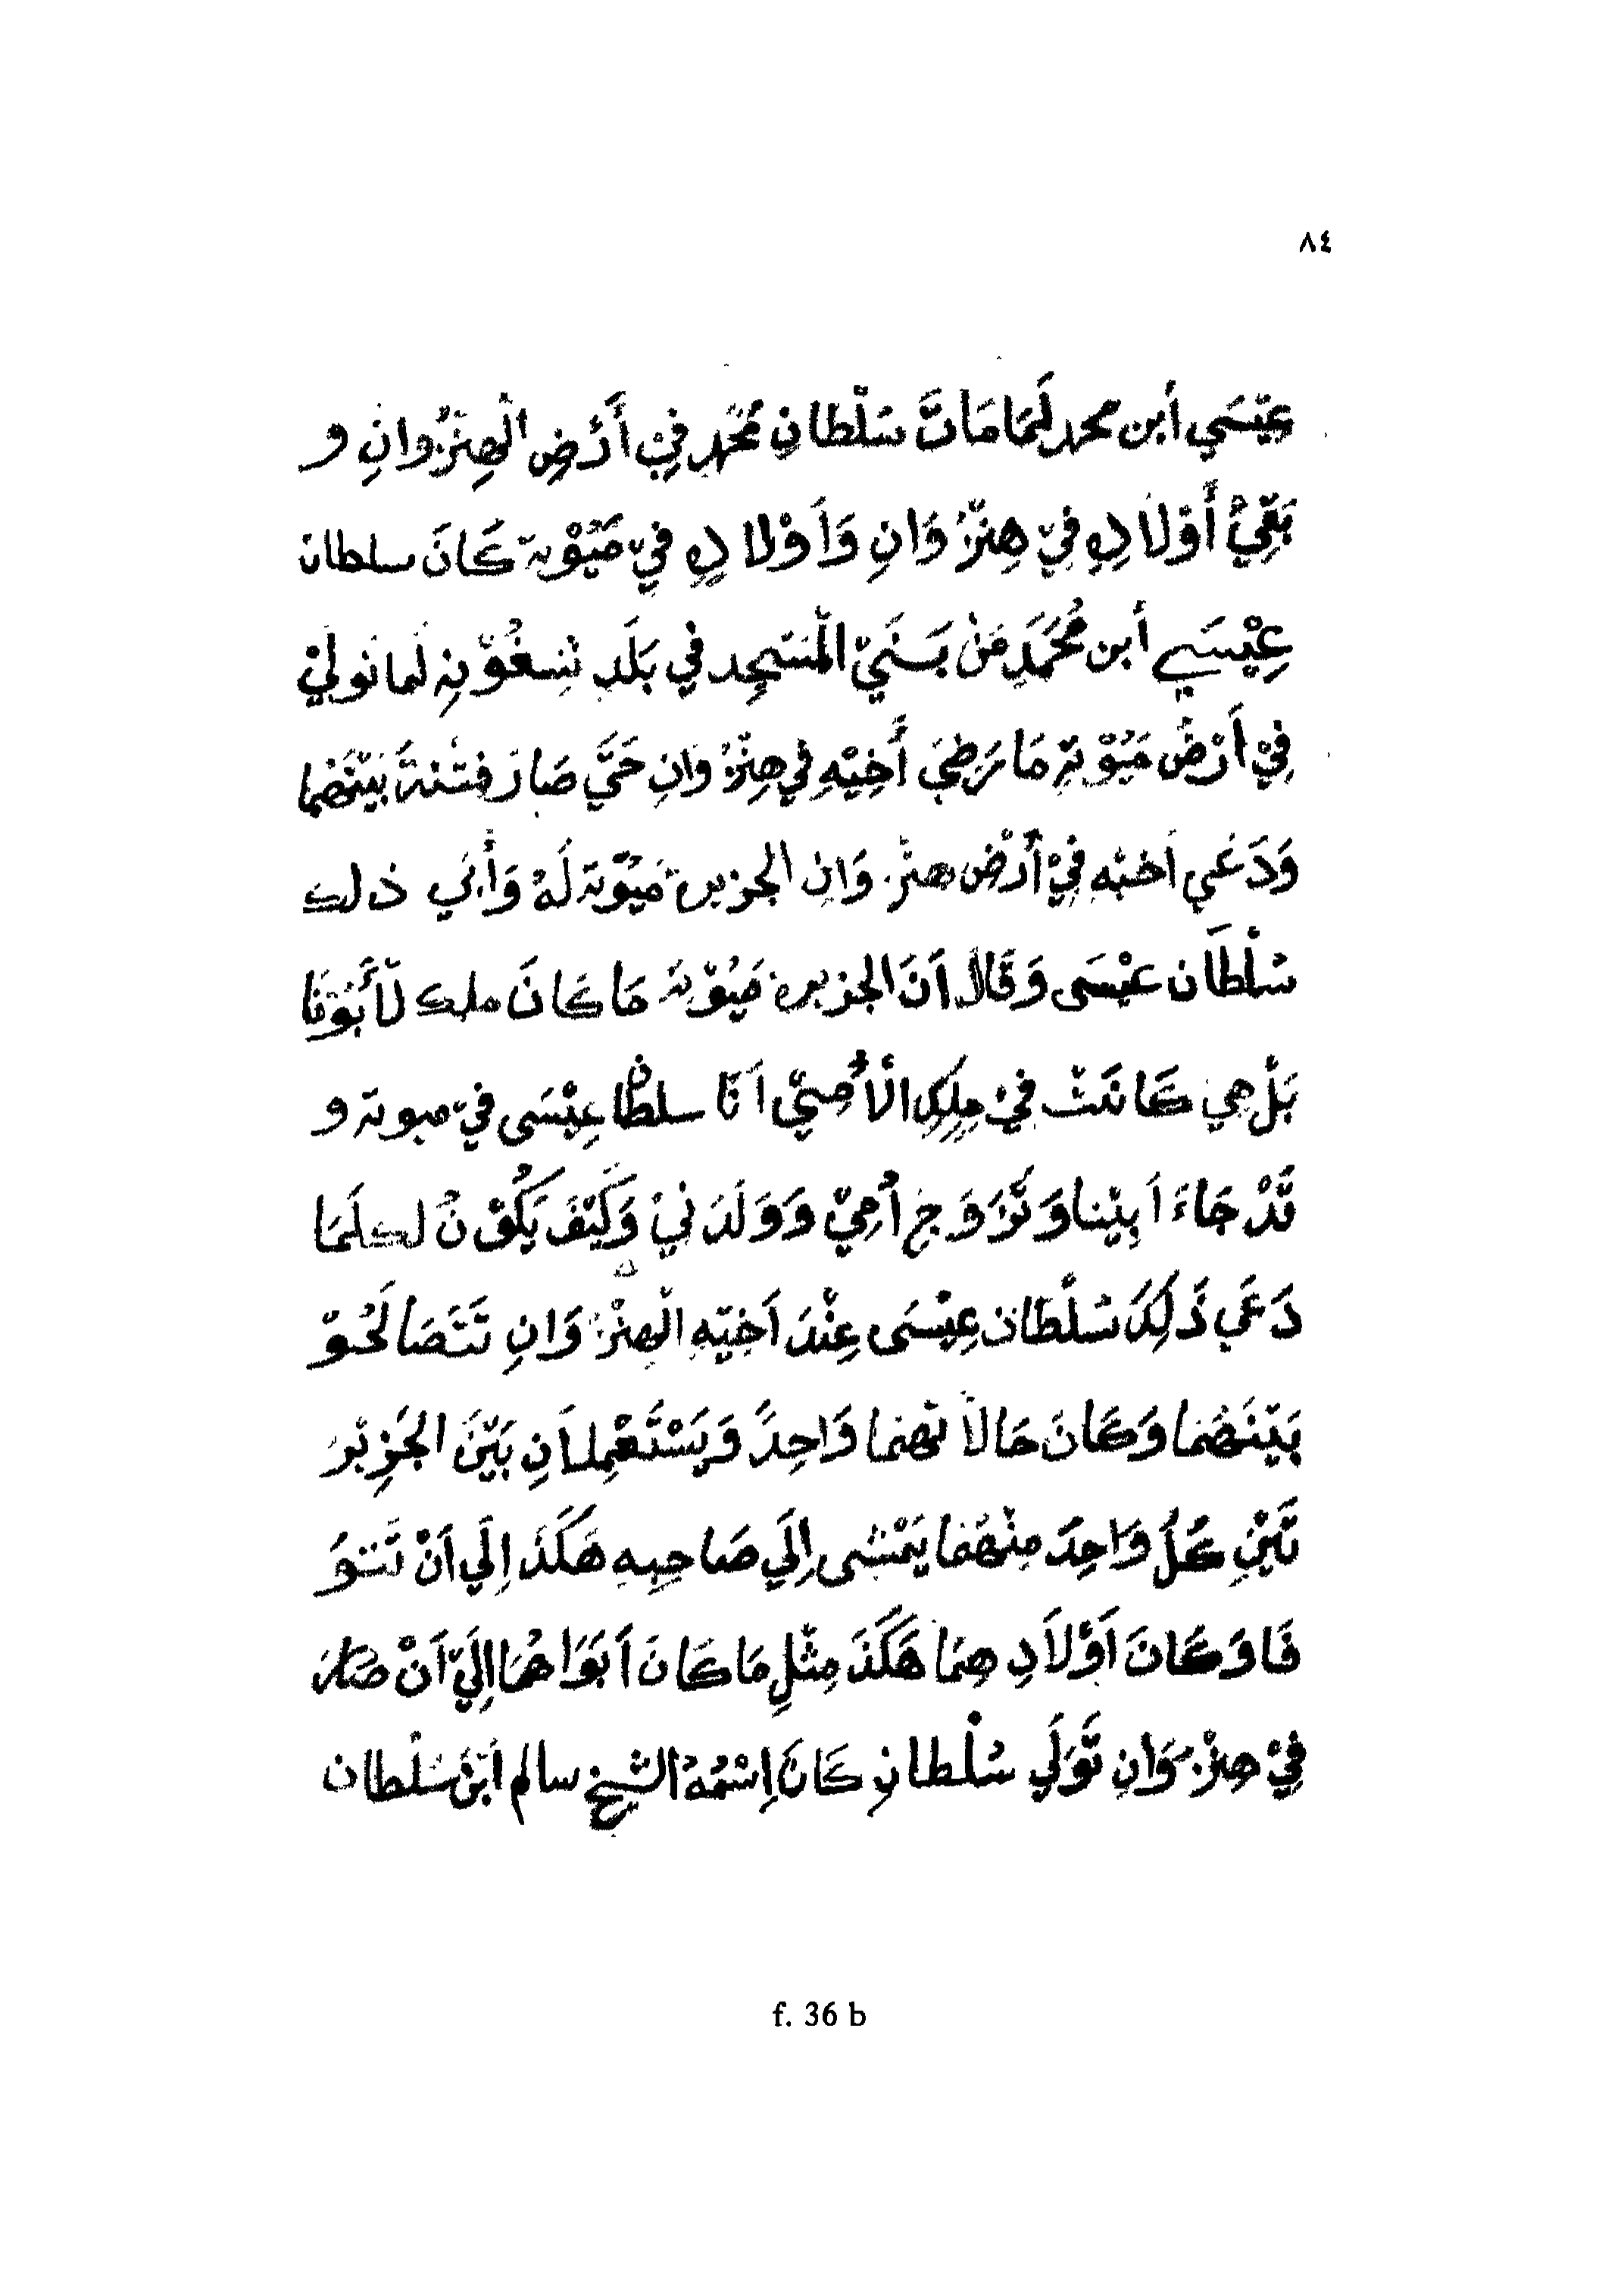 ٨٤
عِيْسَي أبن محمد لَمَا مَاتَ سَلْطَانِ مُحَمَّدِ فِيْ أَرْضِ الْهِنْزُوانِ و
بَقِيْ أَوْلَادِ فِيْ هِنْزُوَانِ وَاَوْلَادِ فِيْ مَيُوْتة كَانَ سلطان
عِيْسَي أبن مُحَمَّدِ مَنْ بَنَيْ الْمَسَجِد فِي بَلَدِ شِنغُوْنِ لَما تولي
فِيْ اَرْضُ مَيُوْتة مَا رَطِيَ أَخِيْهِ فِي هِنْزُوَانِ حَتَّي صَارَ فتْنةً بَيْنَهُما
وَدَعَي اَخيْهِ فِيْ أَرْضِ هِنْزُوَان الجزيرة مَيُوْتة لَهُ وَأَبَي ذلك
سُلْطَان عِيْسَى وَقَالَ اَنَ الجزيرة مَيُوْتة مَا كَانَ ملك لَأَبُوْنَا
بَلْ هِيَ كَانَتْ فِيْ مِلِكِ الْأُمِيّ اَنَا سلطَان عِيْسَى فِيْ ميوتة و
قَدْ جَاءَ اَبِيْنا وَتَزَوَجَ اُمِيْ وَوَلَدَنِيْ وَكَيْفَ يَكُوْنُ لك لَمَا
دَعَي ذَلِكَ سُلْطَان عِيْسَى عِنْدَ اَخِيْهِ الْهِنْزُوَانِ تَتَصَالَحُوْ
بَيْنَهُمَا وَكَانَ حَالاَتهما وَاحِدً وَيَسْتَعْمِلاَنِ بَيْنَ الجَزِيْرَ
تَيْنِ كُلُ وَاحِدَ مِنْهُمَا يَمْشى إِلَي صَاحِبِهِ هَكَذَ إِلَي اَنْ تَتَوَ
فَا وَكَانَ اَوْلاَدِ هِمَا هَكَذَ مِثْلِ مَا كَانَ اَبَوَاهُمَا إِلَيَ اَنْ صَارَ
فِيْ هِنْزُوَانِ تَوَلَي سُلْطَانِ كَانَ اِسْمُهُ الشيخ سالم اَبْنُ سَلْطان
f. 36 b